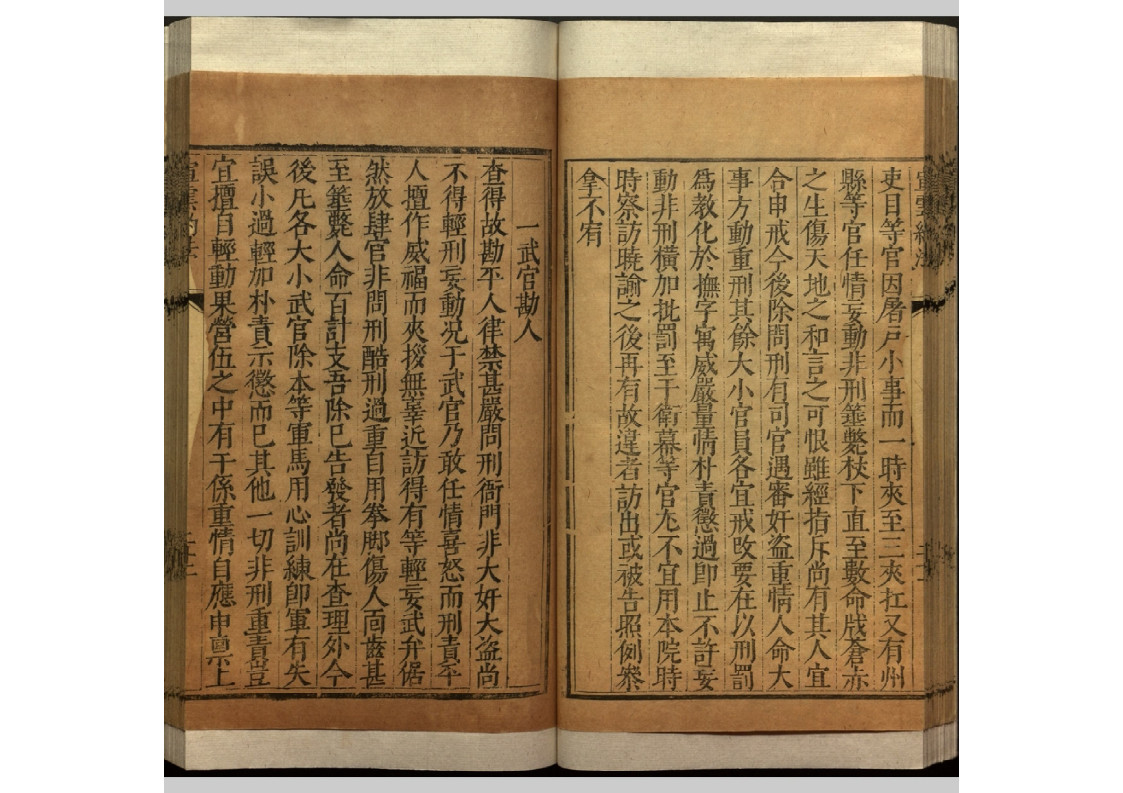 吏目等官因屠戸小事而一時夾至三夾扛又有州
縣等官任情妄動非刑箠斃杖下直至數命戕蒼赤
之生傷天地之和言之可恨雖經指斥尚有其人宜
合申戒今後除問刑有司官遇審奸盜重情人命大
事方動重刑其餘大小官員各宜戒改要在以刑罰
爲教化於撫字寓威嚴量情朴責懲過卽止不許妄
動非刑橫加批罰至于衛幕等官尤不宜用本院時
時察訪曉諭之後再有故違者訪出或被告照例叅
拿不宥
一武官勘人
查得故勘平人律禁甚嚴問刑衙門非大奸大盜尚
不得輕刑妄動况于武官乃敢任情喜怒而刑責平
人擅作威福而夾拶無辜近訪得有等輕妄武弁倨
然放肆官非問刑酷刑過重自用拳脚傷人面齒甚
至箠斃人命百計支吾除巳告發者尚在查理外今
後凡各大小武官除本等軍馬用心訓練卽軍有失
誤小過輕加朴責示懲而巳其他一切非刑重責豈
宜擅自輕動果營伍之中有干係重情自應申禀上